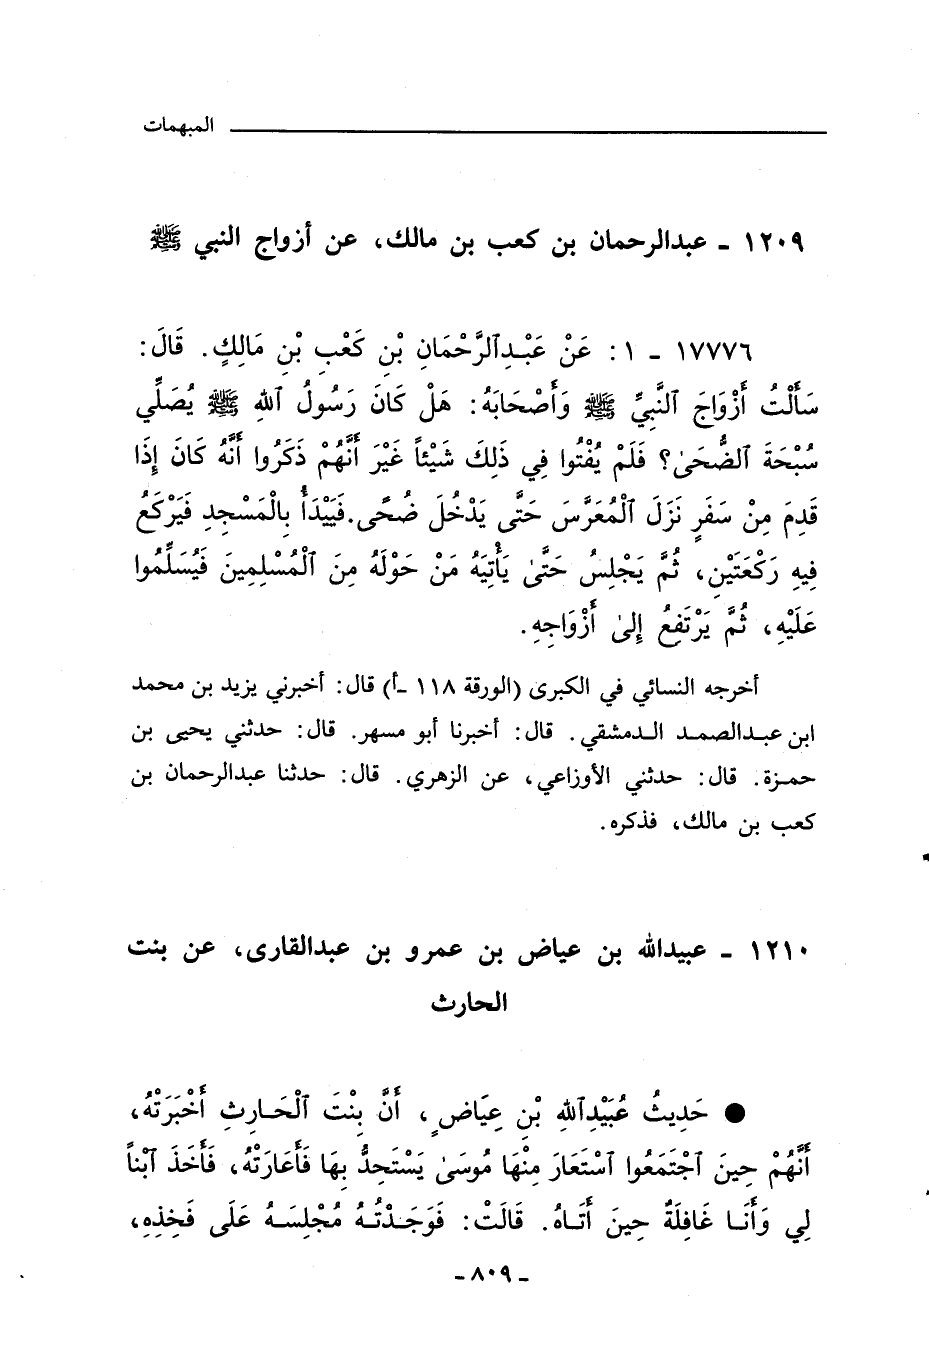 المبهمات
١٢٠٩ - عبدالرحمان بن كعب بن مالك، عن أزواج النبي ﷺ
١٧٧٧٦ - ١ : عَنْ عَبْدِالرَّحْمَانِ بْنِ كَعْبِ بْنِ مَالِكٍ. قَالَ:
سَأَلْتُ أَزْوَاجَ النَّبِيِّ ﷺ وَأَصْحَابَهُ: هَلْ كَانَ رَسُولُ اللهِ ﷺ يُصَلِّي
سُبْحَةَ الضُّحَىٰ؟ فَلَمْ يُفْتُوا فِي ذَلِكَ شَيْئاً غَيْرَ أَنَّهُمْ ذَكَرُوا أَنَّهُ كَانَ إِذَا
قَدِمَ مِنْ سَفَرٍ نَزَلَ الْمُعَرَّسَ حَتَّى يَدْخُلَ ضُحًى. فَيَبْدَأُ بِالْمَسْجِدِ فَيَرْكَعُ
فِيهِ رَكْعَتَيْنِ، ثُمَّ يَجْلِسُ حَتَّىٰ يَأْتِيَهُ مَنْ حَوْلَهُ مِنَ الْمُسْلِمِينَ فَيُسَلِّمُوا
عَلَيْهِ، ثُمَّ يَرْتَفِعُ إِلىٰ أَزْوَاجِهِ.
أخرجه النسائي في الكبرى (الورقة ١١٨ -أ) قال: أخبرني يزيد بن محمد
ابن عبدالصمد الدمشقي. قال: أخبرنا أبو مسهر. قال: حدثني يحيى بن
حمزة. قال: حدثني الأوزاعي، عن الزهري. قال: حدثنا عبدالرحمان بن
كعب بن مالك، فذكره.
١٢١٠ - عبيدالله بن عياض بن عمرو بن عبدالقارى، عن بنت
الحارث
● حَدِيثُ عُبَيْدِاللهِ بْنِ عِيَاضٍ، أَنَّ بِنْتَ الْحَارِثِ أَخْبَرَتْهُ،
أَنَّهُمْ حِينَ اجْتَمَعُوا اسْتَعَارَ مِنْهَا مُوسَىٰ يَسْتَحِدُّ بِهَا فَأَعَارَتْهُ، فَأَخَذَ ابْناً
لِي وَأَنَا غَافِلَةٌ حِينَ أَتَاهُ. قَالَتْ: فَوَجَدْتُهُ مُجْلِسَهُ عَلَى فَخِذِهِ،
- ٨٠٩ -